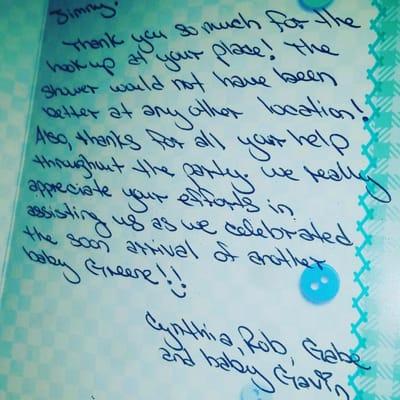 Jimmy,
Thank you so much for the
hook up at your place! The
shower would not have been
better at any other location!
Also, thanks for all your help
throughout the party. We really
appreciate your efforts in
assisting us as we celebrated
the soon arrival of another
baby Greene!!
Cynthia, Rob, Gabe
and baby Gavin